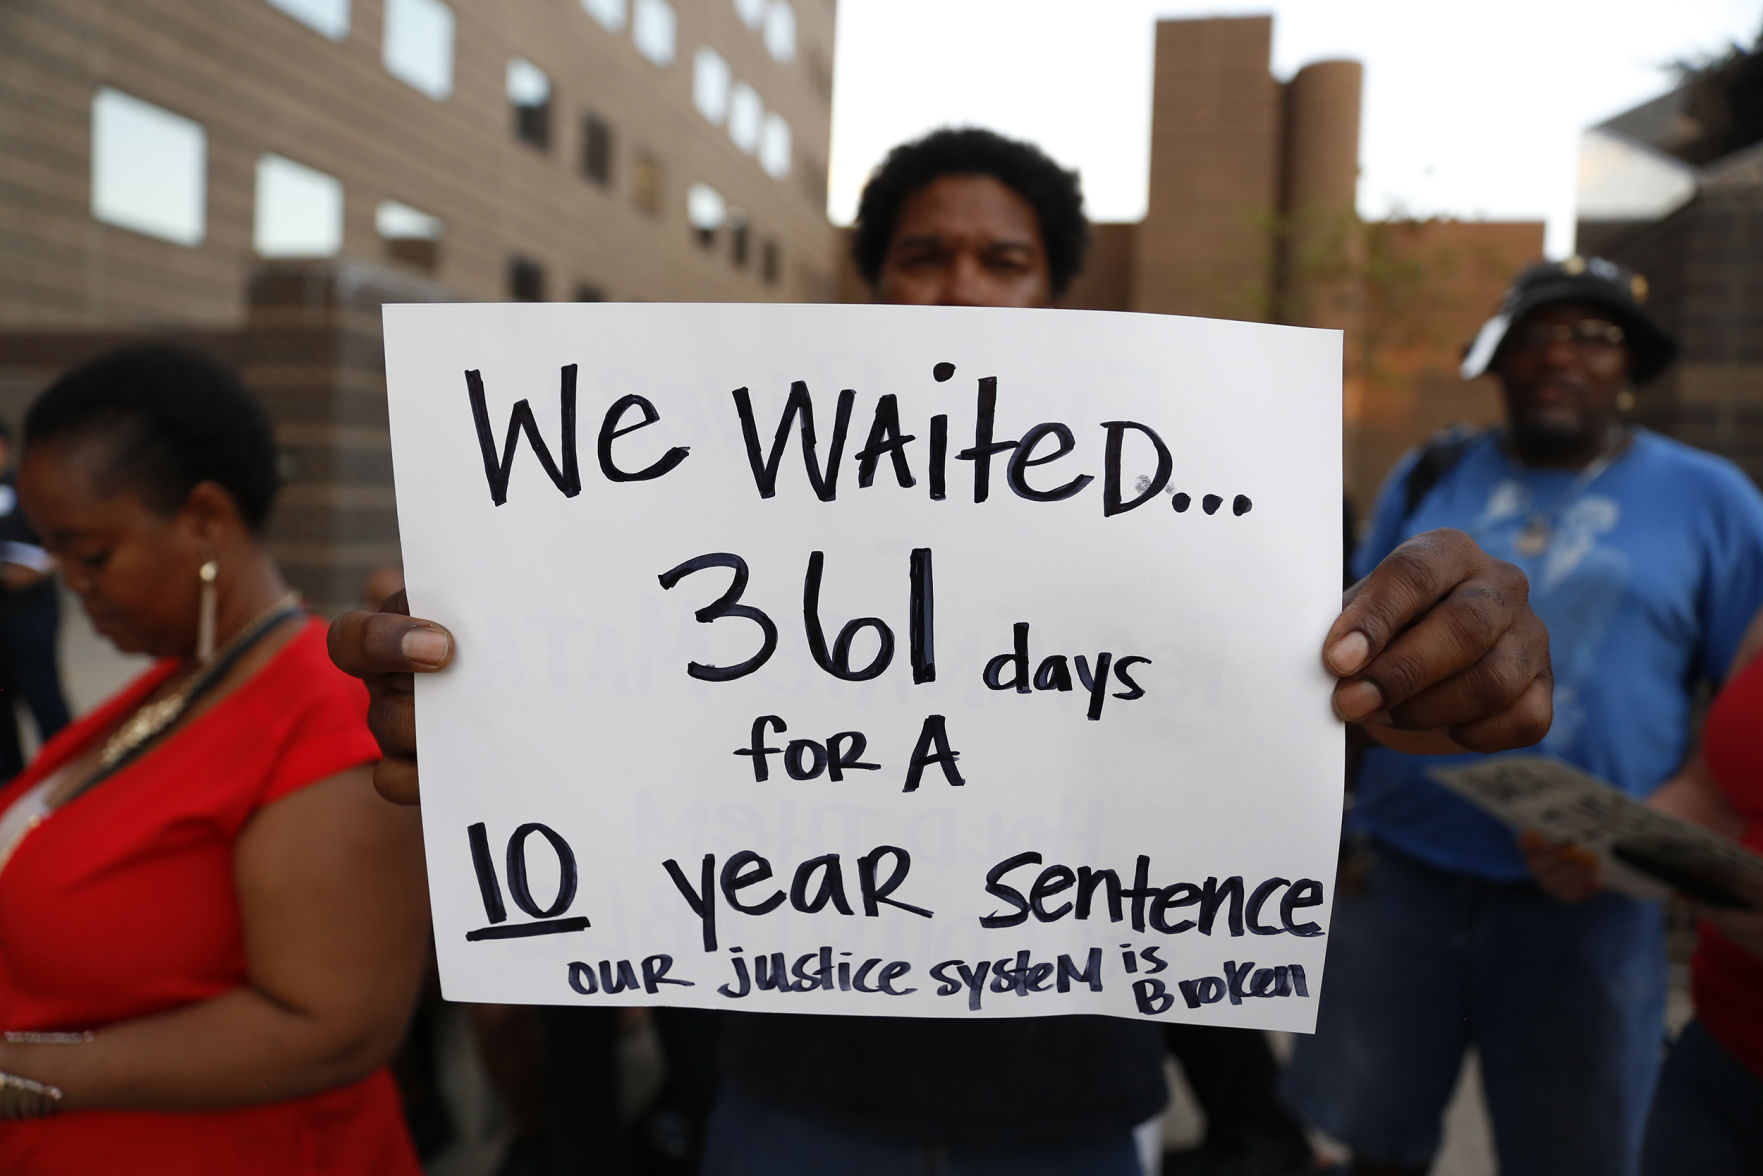 We WAiteD...
361 days
foR A
10 yeaR sentence
ouR justice systeM is Broken